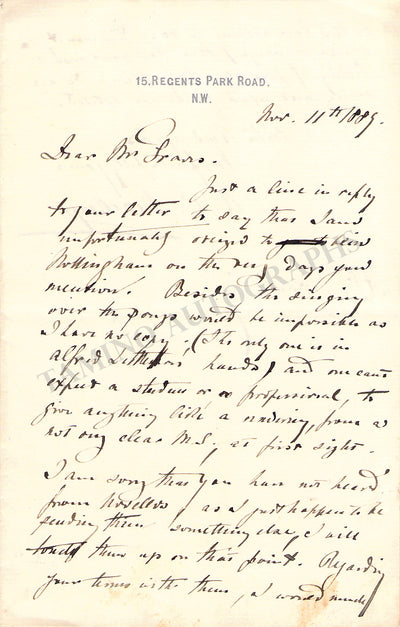 15. REGENTS PARK ROAD.
N.W.
Nov. 11th 1889.
Dear Mr Graves.
Just a line in reply
to your letter to say that I am
unfortunately obliged to be in
Nottingham on the very days you
mention. Besides the singing
over the songs would be impossible as
I have no copy. (The only one is in
Alfred Littleton's hands) and one can't
expect a student or a professional, to
give anything like a rendering, from a
not very clear M.S., at first sight.
I am sorry that you have not heard
from Novellos as I just happen to be
sending them something else, I will
touch them up on that point. Regarding
your terms with them, I would much
TAMINO AUTOGRAPHS